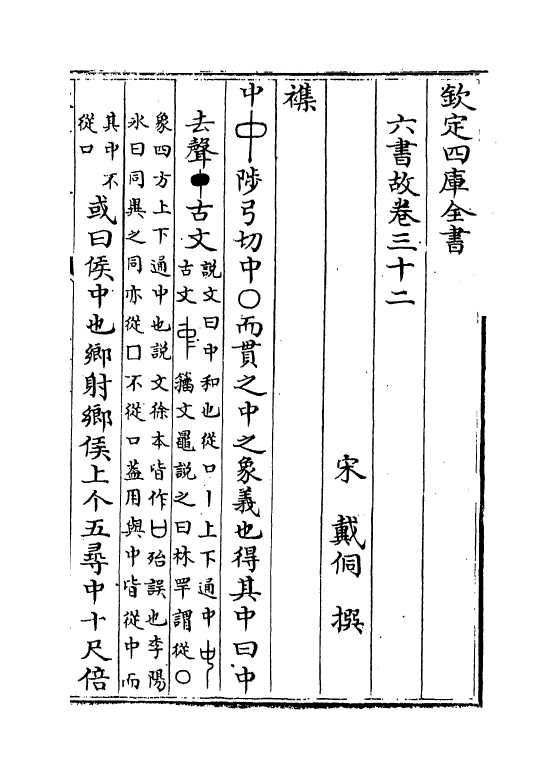 欽定四庫全書
六書故卷三十二
宋 戴侗 撰
襍
中陟弓切中○而貫之中之象義也得其中曰中
去聲古文
說文曰中和也從口丨上下通中
古文籒文鼂說之曰林罕謂從○
象四方上下通中也說文徐本皆作殆誤也李陽
冰曰同異之同亦從囗不從口葢用與中皆從中而
其中不
從口
或曰侯中也鄉射鄉侯上个五尋中十尺倍